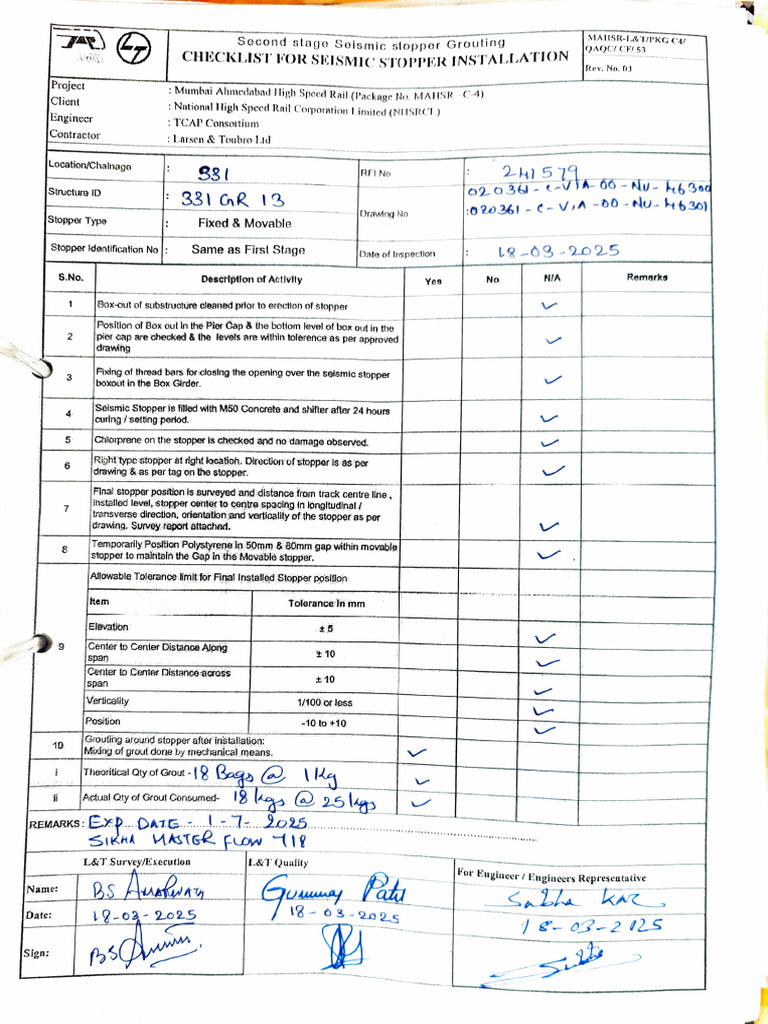 Second stage Seismic stopper Grouting
CHECKLIST FOR SEISMIC STOPPER INSTALLATION
MAHSR-L&T/PKG C4/
QAQC/ CF/ 53
Rev. No. 03
Project : Mumbai Ahmedabad High Speed Rail (Package No. MAHSR - C-4)
Client : National High Speed Rail Corporation Limited (NHSRCL)
Engineer : TCAP Consortium
Contractor : Larsen & Toubro Ltd
Location/Chainage : 331 RFI No : 241579
Structure ID : 331 GR 13 Drawing No : 020361-C-VIA-00-NU-46300
020361-C-VIA-00-NU-46301
Stopper Type : Fixed & Movable
Stopper Identification No : Same as First Stage Date of Inspection : 18-03-2025
S.No. Description of Activity Yes No N/A Remarks
1 Box-out of substructure cleaned prior to erection of stopper ✓
2 Position of Box out in the Pier Cap & the bottom level of box out in the
pier cap are checked & the levels are within tolerence as per approved
drawing ✓
3 Fixing of thread bars for closing the opening over the seismic stopper
boxout in the Box Girder. ✓
4 Seismic Stopper is filled with M50 Concrete and shifter after 24 hours
curing / setting period. ✓
5 Chlorprene on the stopper is checked and no damage observed. ✓
6 Right type stopper at right location. Direction of stopper is as per
drawing & as per tag on the stopper. ✓
7 Final stopper position is surveyed and distance from track centre line ,
installed level, stopper center to centre spacing in longitudinal /
transverse direction, orientation and verticality of the stopper as per
drawing. Survey report attached. ✓
8 Temporarily Position Polystyrene in 50mm & 80mm gap within movable
stopper to maintain the Gap in the Movable stopper. ✓
9 Allowable Tolerance limit for Final Installed Stopper position
Item Tolerance in mm
Elevation ± 5 ✓
Center to Center Distance Along
span ± 10 ✓
Center to Center Distance across
span ± 10 ✓
Verticality 1/100 or less ✓
Position -10 to +10 ✓
10 Grouting around stopper after installation:
Mixing of grout done by mechanical means. ✓
i Theoritical Qty of Grout - 18 Bags @ 1 Kg ✓
ii Actual Qty of Grout Consumed- 18 kgs @ 25 kgs ✓
REMARKS: EXP DATE - 1-7-2025
SIKHA MASTER FLOW 718
L&T Survey/Execution L&T Quality For Engineer / Engineers Representative
Name: BS Patil Sabha Kar
Date: 18-03-2025 18-03-2025 18-03-2025
Sign: BS